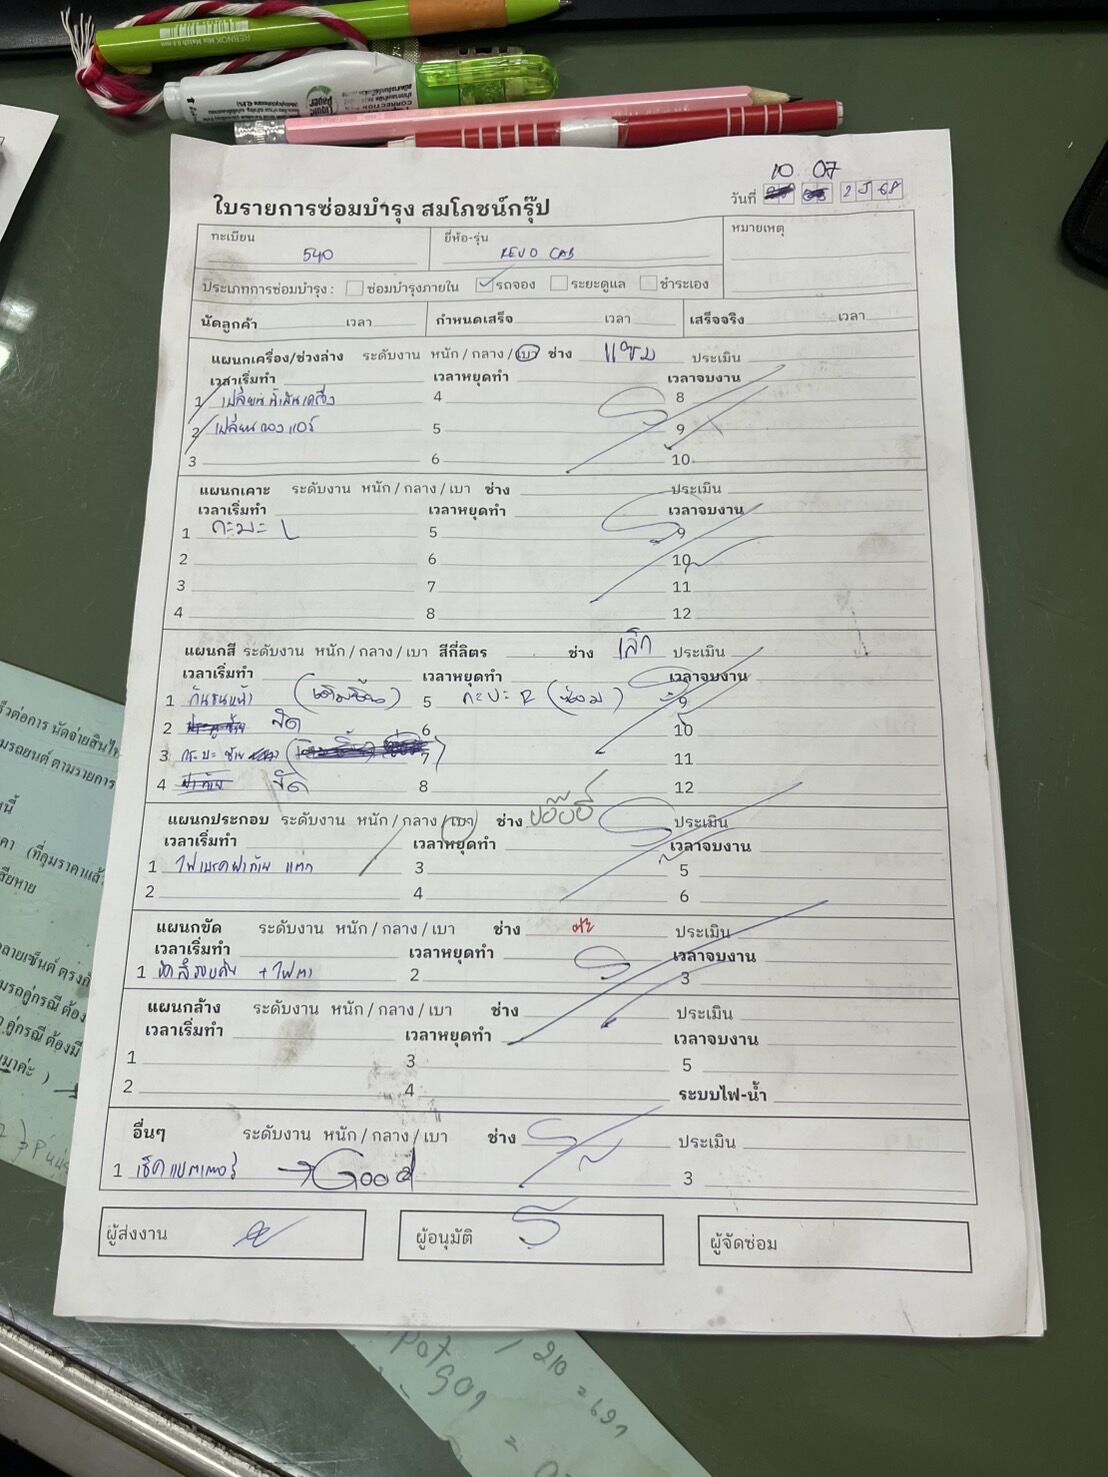 10 07
วันที่ 2568
ใบรายการซ่อมบำรุง สมโภชน์กรุ๊ป
ทะเบียน 540 ยี่ห้อ-รุ่น REVO CAB หมายเหตุ
ประเภทการซ่อมบำรุง : ซ่อมบำรุงภายใน รถจอง ระยะดูแล ชำระเอง
นัดลูกค้า เวลา กำหนดเสร็จ เวลา เสร็จจริง เวลา
แผนกเครื่อง/ช่วงล่าง ระดับงาน หนัก / กลาง / เบา ช่าง แชม ประเมิน
เวลาเริ่มทำ เวลาหยุดทำ เวลาจบงาน
1 เปลี่ยนน้ำมันเครื่อง 4 8
2 เปลี่ยนกรองแอร์ 5 9
3 6 10
แผนกเคาะ ระดับงาน หนัก / กลาง / เบา ช่าง ประเมิน
เวลาเริ่มทำ เวลาหยุดทำ เวลาจบงาน
1 กะบะ L 5 9
2 6 10
3 7 11
4 8 12
แผนกสี ระดับงาน หนัก / กลาง / เบา สีกี่ลิตร ช่าง เล็ก ประเมิน
เวลาเริ่มทำ เวลาหยุดทำ เวลาจบงาน
1 กันชนหน้า 5 กะบะ R (ซ่อม) 9
2 ขัด 6 10
3 กระบะ ซ้าย 7 11
4 ขัด 8 12
แผนกประกอบ ระดับงาน หนัก / กลาง / เบา ช่าง ประเมิน
เวลาเริ่มทำ เวลาหยุดทำ เวลาจบงาน
1 ไฟเบรคฝาท้าย แตก 3 5
2 4 6
แผนกขัด ระดับงาน หนัก / กลาง / เบา ช่าง ประเมิน
เวลาเริ่มทำ เวลาหยุดทำ เวลาจบงาน
1 ขัดสีรอบคัน + ไฟตา 2 3
แผนกล้าง ระดับงาน หนัก / กลาง / เบา ช่าง ประเมิน
เวลาเริ่มทำ เวลาหยุดทำ เวลาจบงาน
1 3 5
2 4 ระบบไฟ-น้ำ
อื่นๆ ระดับงาน หนัก / กลาง / เบา ช่าง ประเมิน
1 เช็คแบตเตอรี่ → Good 3
ผู้ส่งงาน ผู้อนุมัติ ผู้จัดซ่อม